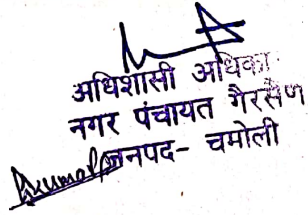 अधिशासी अधिका
नगर पंचायत गैरसैण
जनपद- चमोली